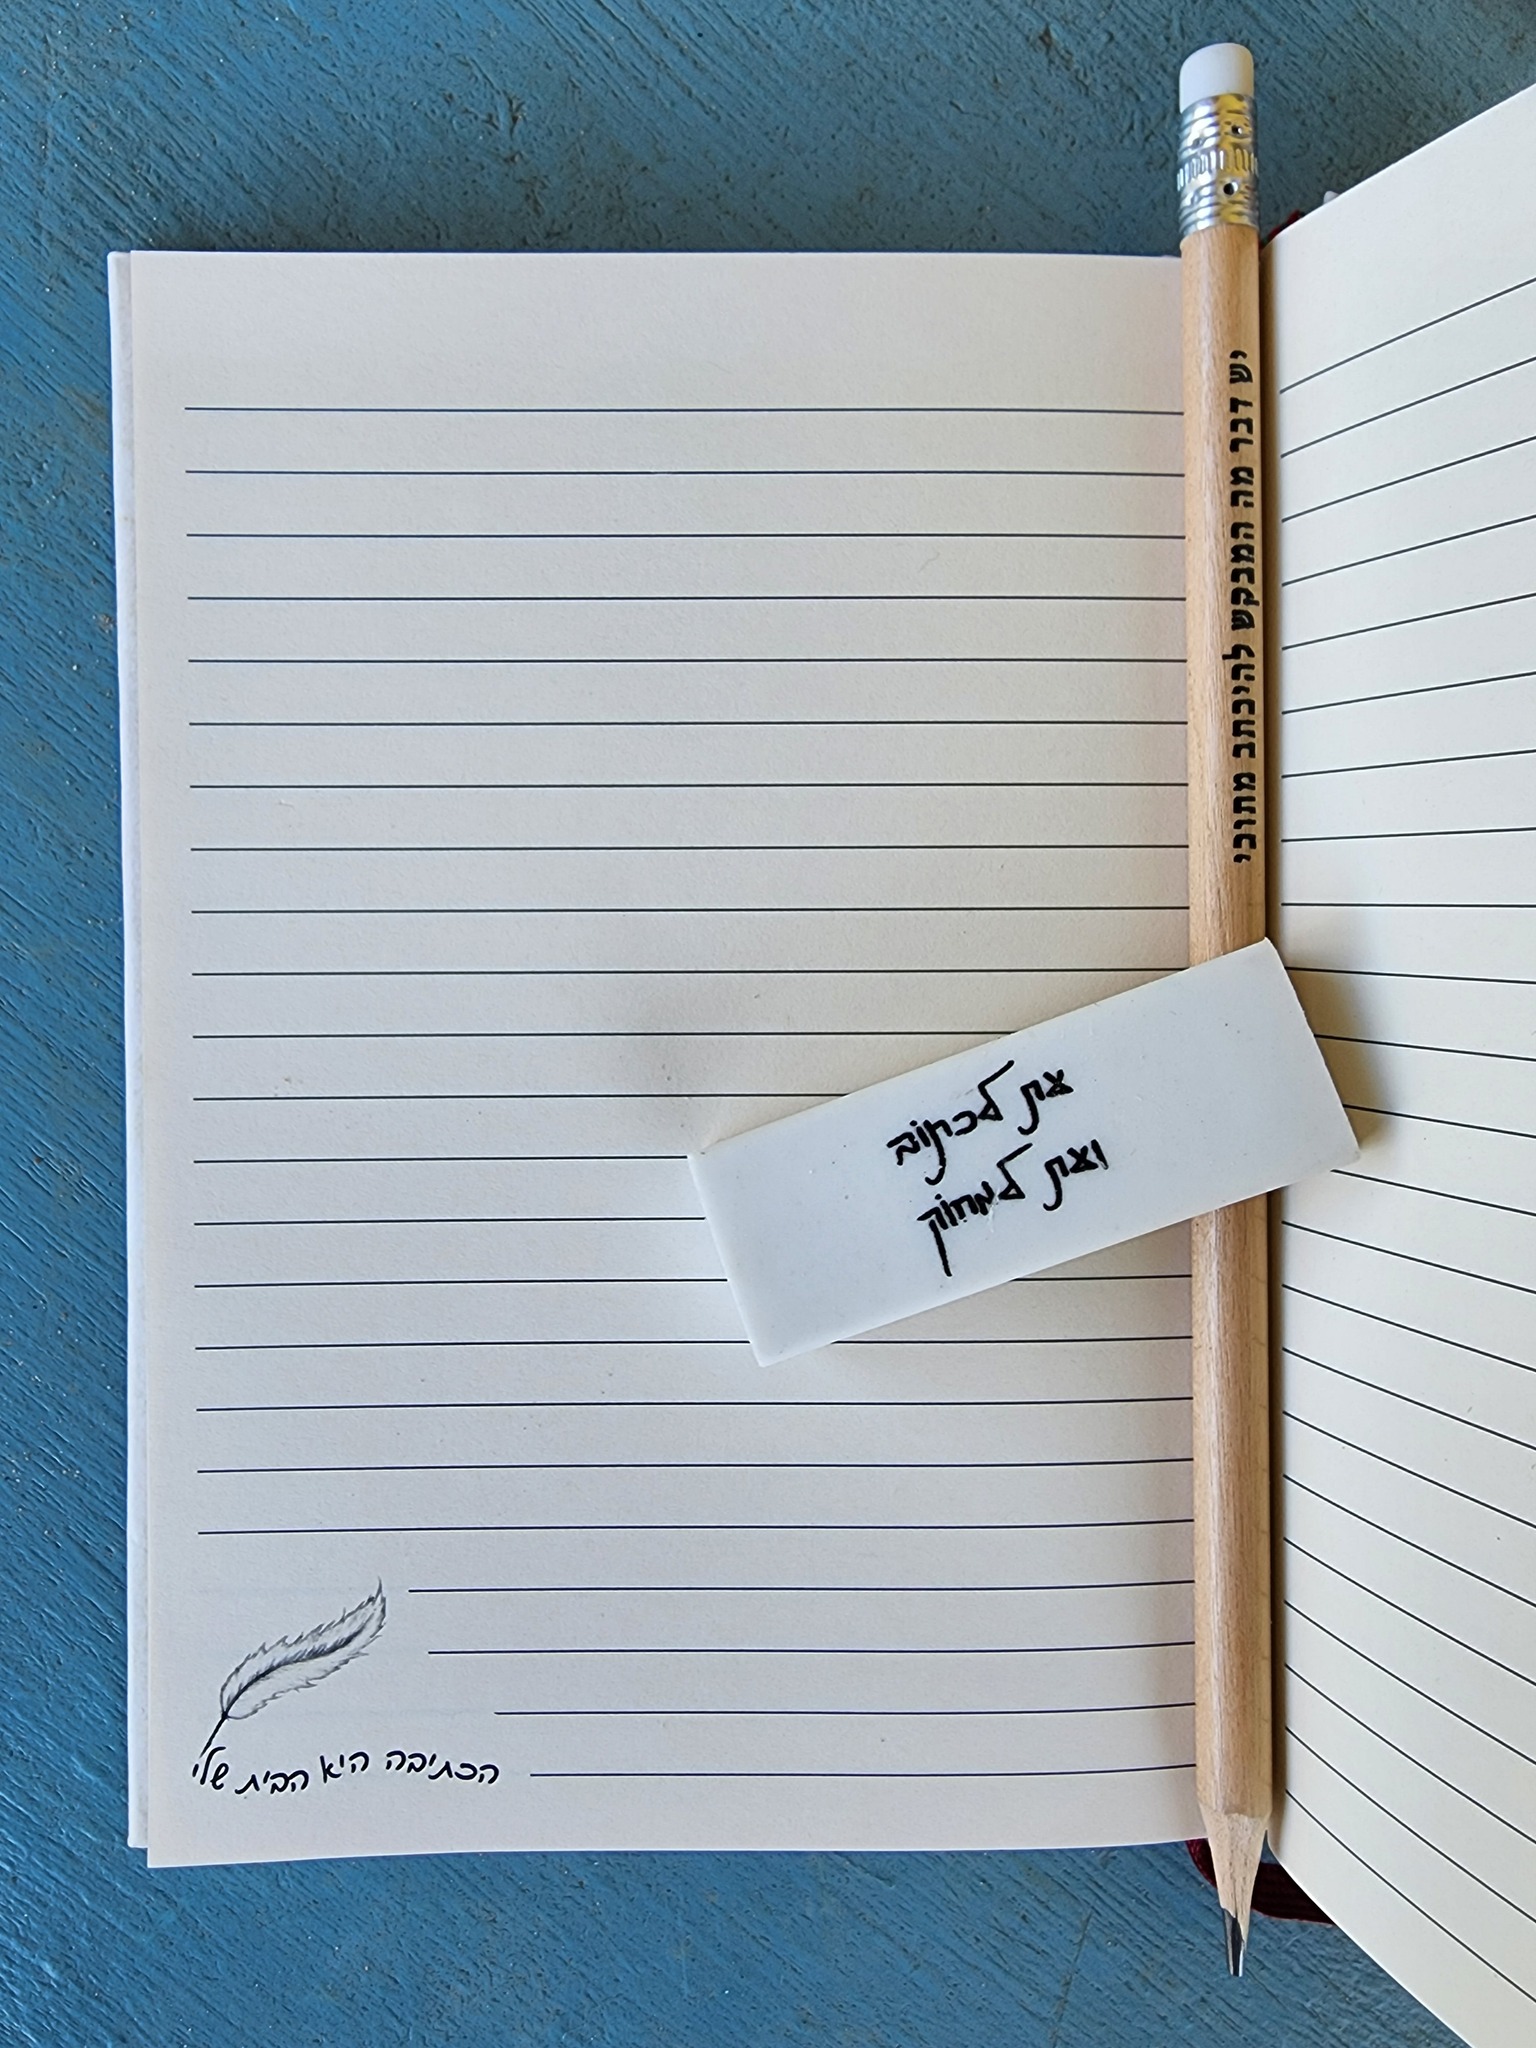 יש דבר מה המבקש להיכתב מתוכי
את לכתוב
ואת למחוק
הכתיבה היא הבית שלי